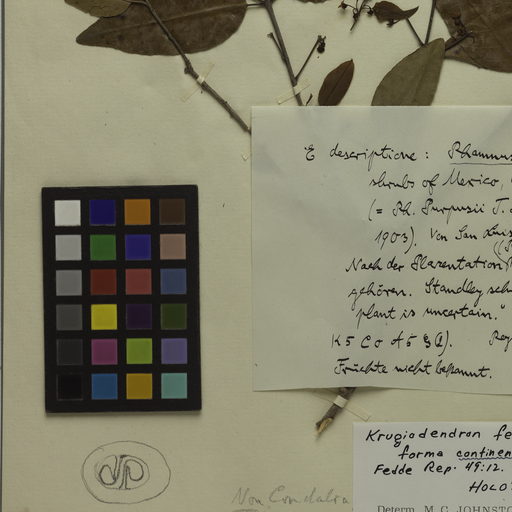 E descriptione: Rhamnus
shrubs of Mexico,
(= Rh. Purpusii T.
1903). Von San Luis
Nach der Plazentation
gehören. Standley
plant is uncertain."
K5 C5 A5
Früchte nicht bekannt.
Krugiodendron fe
forma continen
Fedde Rep. 49:12.
HOLO
Non Condalia
Determ. M. C. JOHNSTO